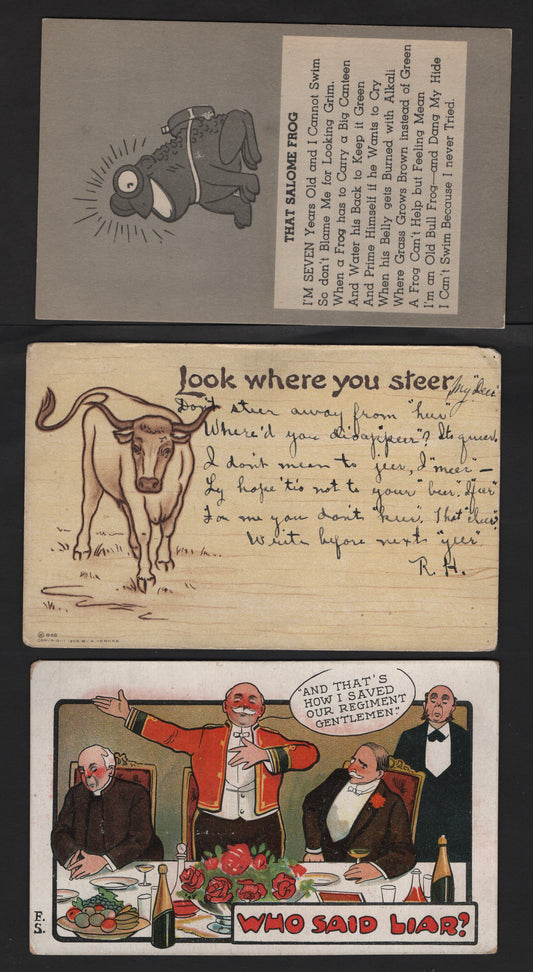 THAT SALOME FROG
I'M SEVEN Years Old and I Cannot Swim
So don't Blame Me for Looking Grim.
When a Frog has to Carry a Big Canteen
And Water his Back to Keep it Green
And Prime Himself if he Wants to Cry
When his Belly gets Burned with Alkali
Where Grass Grows Brown instead of Green
A Frog Can't Help but Feeling Mean
I'm an Old Bull Frog—and Dang My Hide
I Can't Swim Because I never Tried.
look where you steer
My "deer"
Don't steer away from "heer"
Where'd you disappeer"? Its queer.
I don't mean to jeer, I "meer"—
Ly hope 'tis not to your "beer".
For me you don't "keer". That "cheer"
Write before next "yeer"
R. H.
"AND THAT'S
HOW I SAVED
OUR REGIMENT
GENTLEMEN."
F.
S.
WHO SAID LIAR?